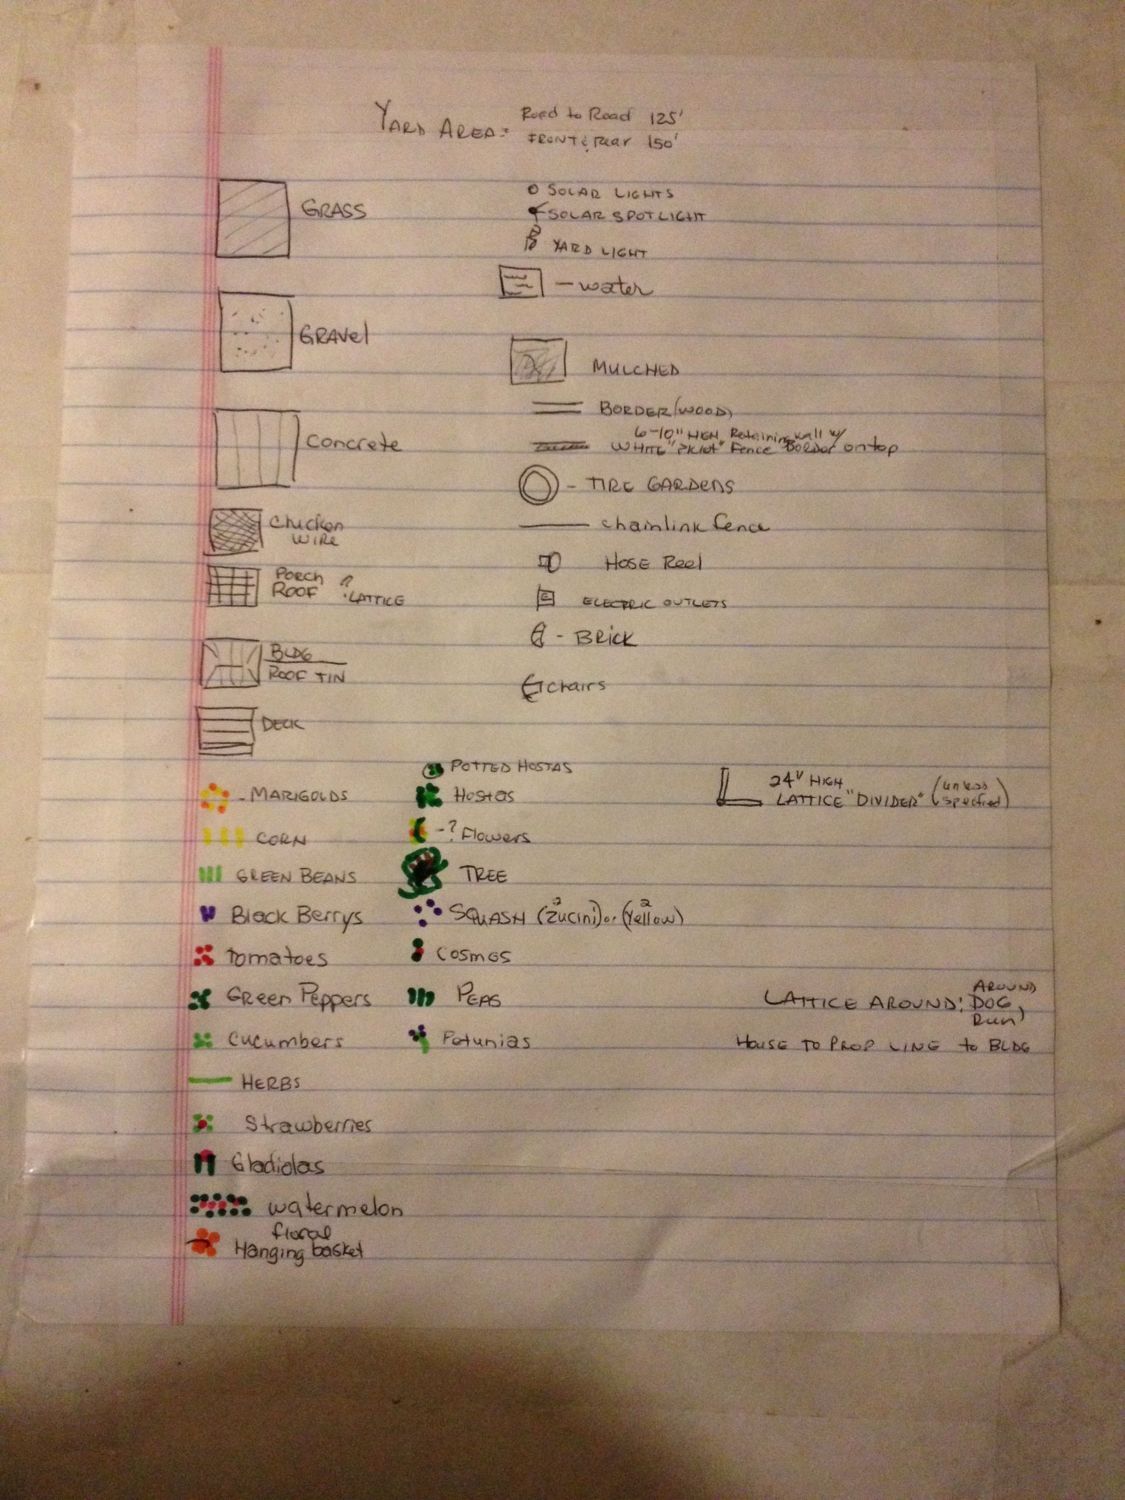 YARD AREA:
Road to Road 125'
FRONT & Rear 150'
GRASS
GRAVel
Concrete
Chicken
WIRE
PORCH
ROOF ? LATTICE
BLDG
ROOF TIN
DECK
SOLAR LIGHTS
SOLAR SPOTLIGHT
YARD LIGHT
- water
MULCHED
BORDER (WOOD)
6-10" HIGH Retaining wall w/
WHITE "PKIOT" Fence Border on top
- TIRE GARDENS
chainlink fence
HOSE Reel
ELECTRIC OUTLETS
- BRICK
chairs
- MARIGOLDS
CORN
GREEN BEANS
Black Berrys
Tomatoes
Green Peppers
Cucumbers
HERBS
Strawberries
Gladiolas
watermelon
floral
Hanging basket
POTTED HOSTAS
Hostas
-? Flowers
TREE
SQUASH (2 Zucini) or (2 Yellow)
Cosmos
PEAS
Petunias
24" HIGH
LATTICE "DIVIDER" (unless specified)
LATTICE AROUND: AROUND DOG Run,
HOUSE TO PROP LINE to BLDG